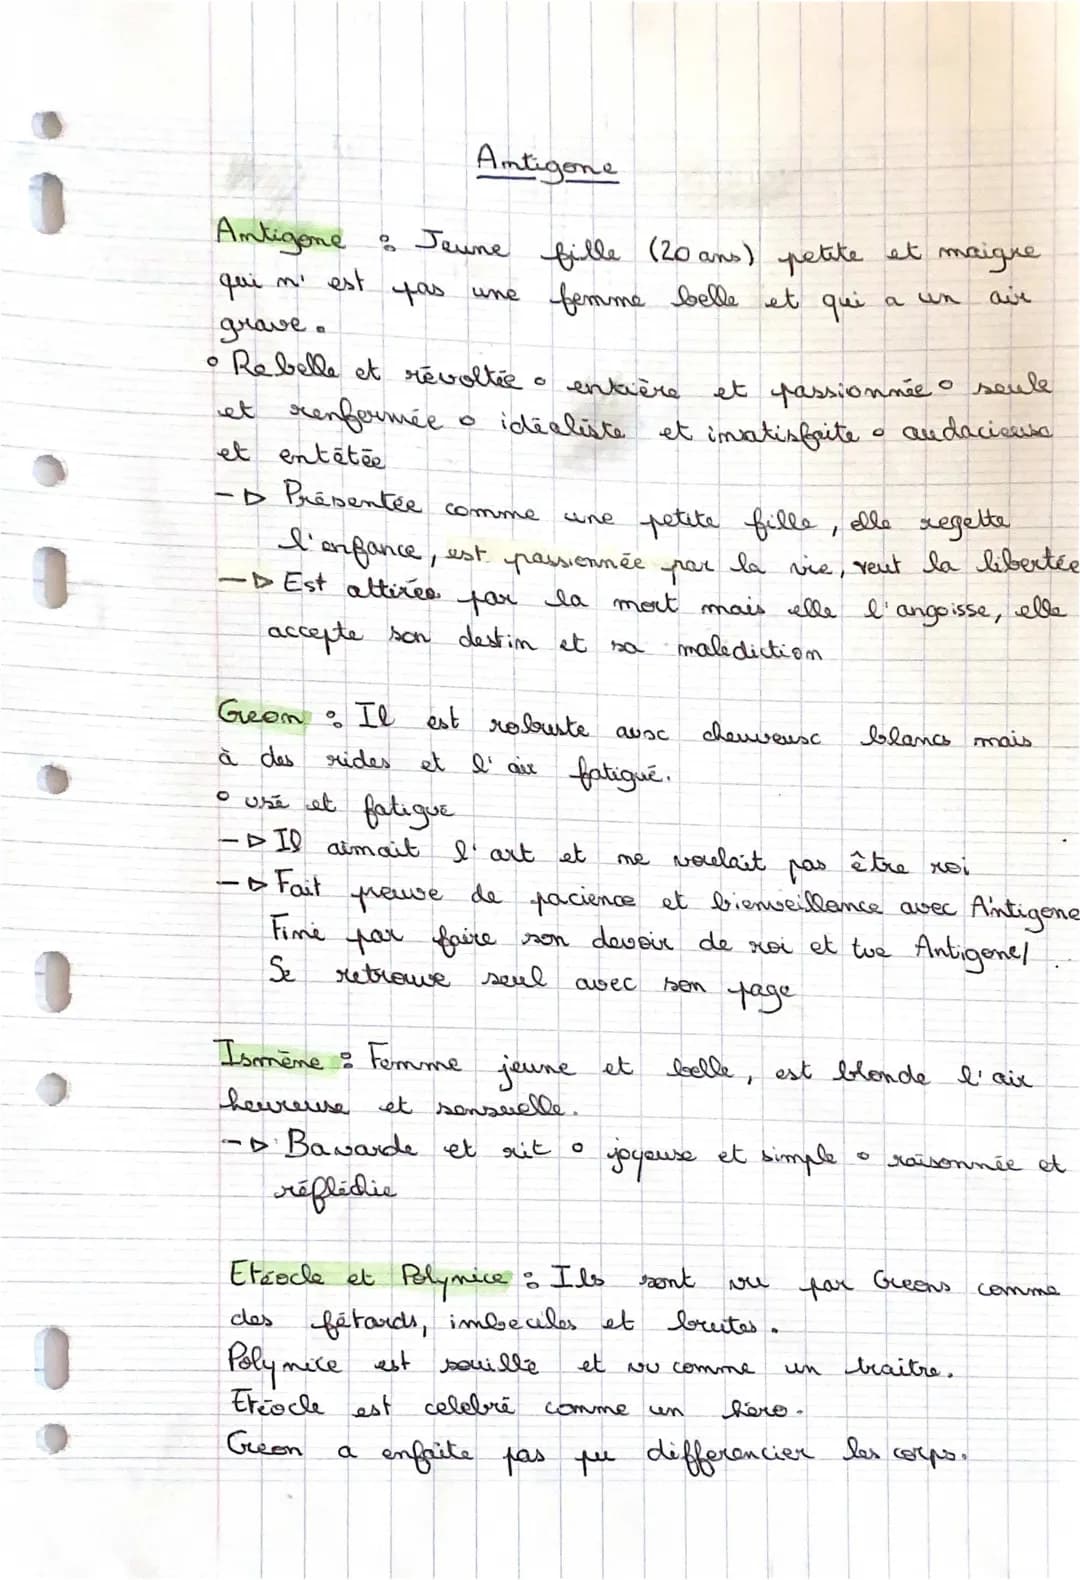 Antigone
Antigone : Jeune fille (20 ans) petite et maigre
qui n'est pas une femme belle et qui a un air
grave.
• Rebelle et révoltée • entière et passionnée • seule
et renfermée • idéaliste et insatisfaite • audacieuse
et entêtée
-▷ Présentée comme une petite fille, elle regette
l'enfance, est passionnée par la vie, veut la libertée
-▷ Est attirée par la mort mais elle l'angoisse, elle
accepte son destin et sa malédiction
Creon : Il est robuste avec cheuveux blancs mais
à des rides et l'air fatigué.
• usé et fatigué
-▷ Il aimait l'art et ne voulait pas être roi
-▷ Fait preuve de pacience et bienveillance avec Antigone
Fini par faire son devoir de roi et tue Antigone/
Se retrouve seul avec son page
Ismène : Femme jeune et belle, est blonde l'air
heureuse et sensuelle.
-▷ Bavarde et rit • joyeuse et simple • raisonnée et
réfléchie
Etéocle et Polynice : Ils sont vu par Creons comme
des fétards, imbeciles et brutes.
Polynice est souillé et vu comme un traitre.
Etéocle est celebré comme un héro.
Creon a enfaite pas pu differencier les corps.